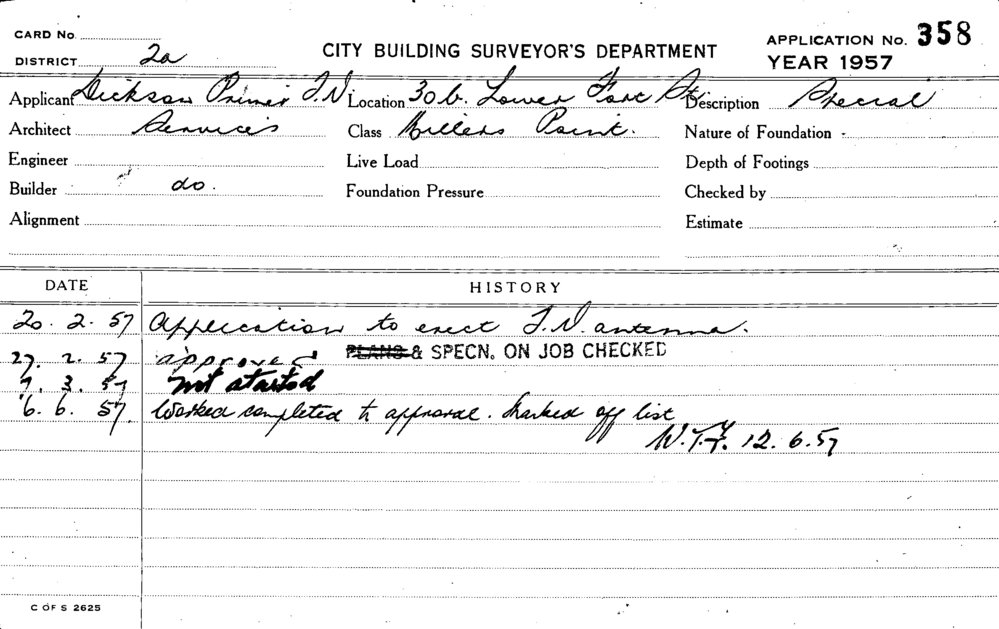 CARD No.
DISTRICT 2a
CITY BUILDING SURVEYOR'S DEPARTMENT
APPLICATION No. 358
YEAR 1957
Applicant Dickson Primer T.V. Location 30b. Lower Fort St Description Special
Architect Services Class Millers Point. Nature of Foundation -
Engineer Live Load Depth of Footings
Builder do. Foundation Pressure Checked by
Alignment Estimate
DATE HISTORY
20. 2. 57 Application to erect T.V. antenna.
27. 2. 57 approved PLANS & SPECN. ON JOB CHECKED
7. 3. 57 not started
6. 6. 57. Worked completed to approval. Marked off list
12. 6. 57
C OF S 2625